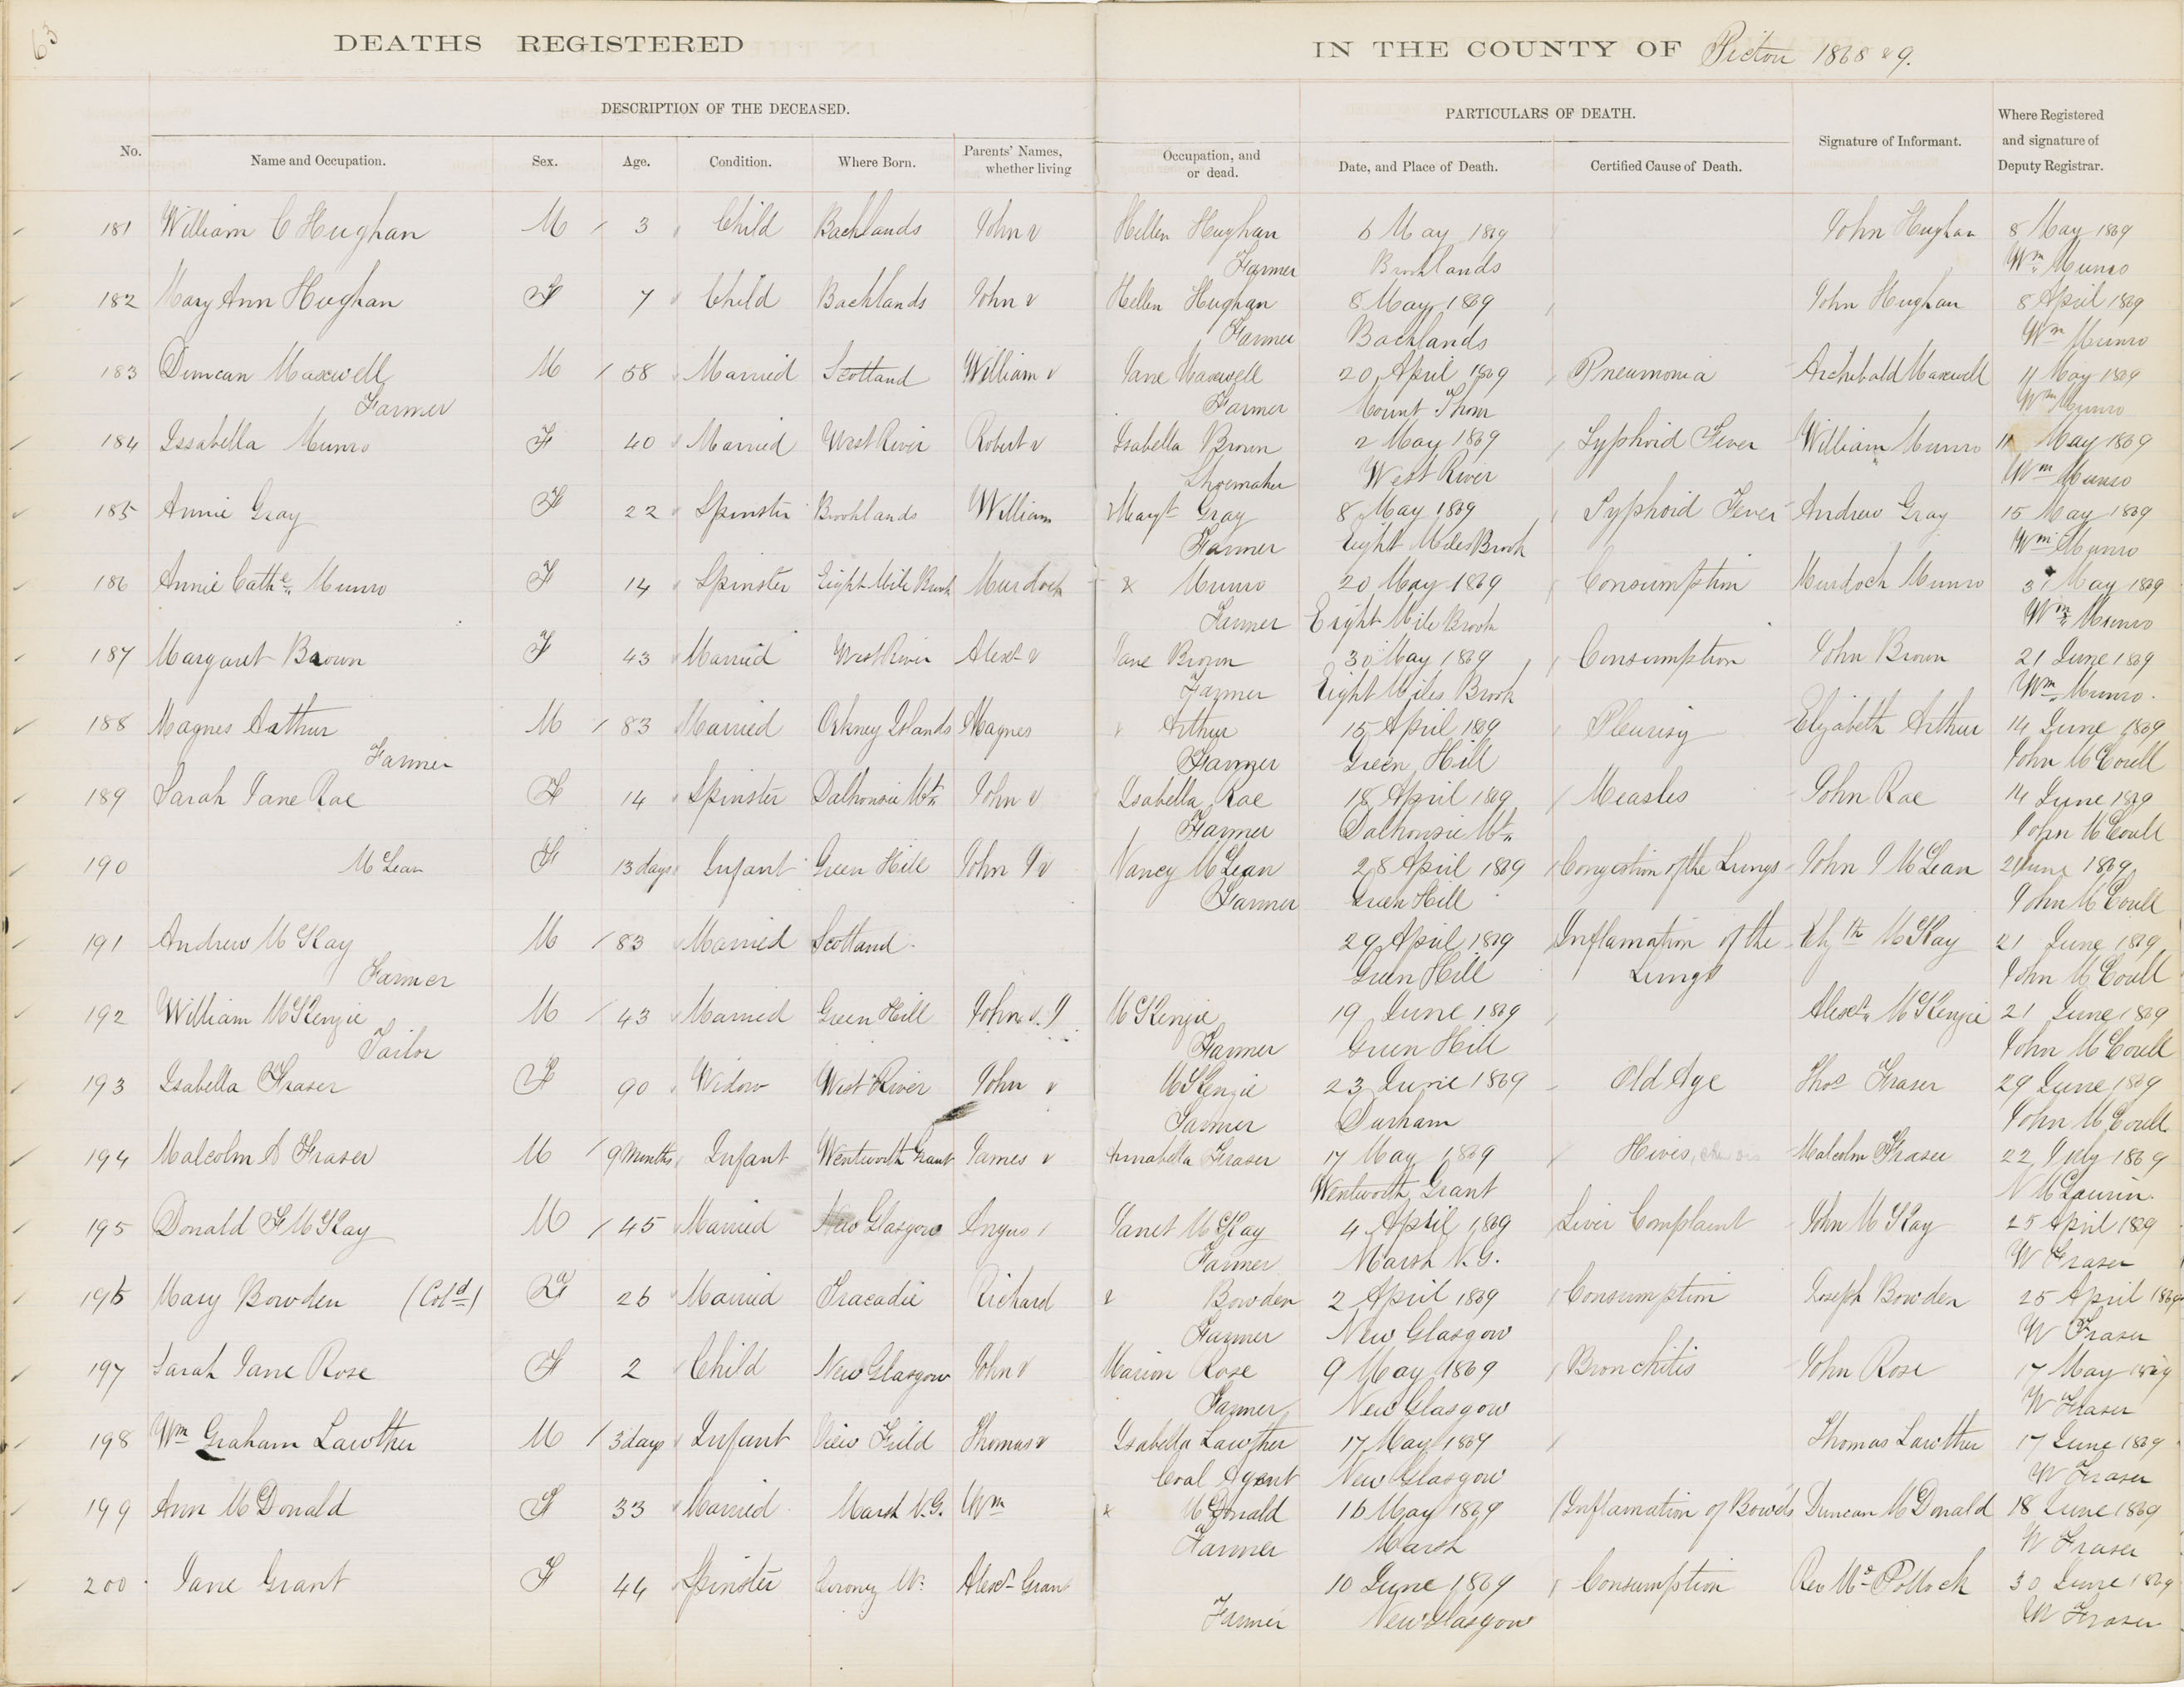 63
DEATHS REGISTERED IN THE COUNTY OF Pictou 1868 & 9.
DESCRIPTION OF THE DECEASED. PARTICULARS OF DEATH.
No. Name and Occupation. Sex. Age. Condition. Where Born. Parents' Names, whether living Occupation, and or dead. Date, and Place of Death. Certified Cause of Death. Signature of Informant. Where Registered and signature of Deputy Registrar.
181 William C Hughan M 3 Child Backlands John & Hellen Hughan 6 May 1869 John Hughan 8 May 1869
Farmer Brooklands Wm Munro
182 Mary Ann Hughan F 7 Child Backlands John & Hellen Hughan 8 May 1869 John Hughan 8 April 1869
Farmer Backlands Wm Munro
183 Duncan Maxwell M 58 Married Scotland William & Jane Maxwell 20 April 1869 Pneumonia Archibald Maxwell 11 May 1869
Farmer Farmer Mount Thom Wm Munro
184 Issabella Munro F 40 Married West River Robert & Isabella Brown 2 May 1869 Typhoid Fever William Munro 11 May 1869
Shoemaker West River Wm Munro
185 Annie Gray F 22 Spinster Brooklands William & Mary Gray 8 May 1869 Typhoid Fever Andrew Gray 15 May 1869
Farmer Eight Miles Brook Wm Munro
186 Annie Cathe Munro F 14 Spinster Eight Mile Brook Murdoch & Munro 20 May 1869 Consumption Murdoch Munro 31 May 1869
Farmer Eight Mile Brook Wm Munro
187 Margaret Brown F 43 Married West River Alexr & Jane Brown 30 May 1869 Consumption John Brown 21 June 1869
Farmer Eight Miles Brook Wm Munro.
188 Magnes Arthur M 83 Married Orkney Islands Magnes & Arthur 15 April 1869 Pleurisy Elizabeth Arthur 14 June 1869
Farmer Farmer Green Hill John McCoull
189 Sarah Jane Rae F 14 Spinster Dalhousie Mtn John & Isabella Rae 18 April 1869 Measles John Rae 14 June 1869
Farmer Dalhousie Mtn John McCoull
190 McLean F 13 days Infant Green Hill John J & Nancy McLean 28 April 1869 Congestion of the Lungs John J McLean 21 June 1869
Farmer Green Hill John McCoull
191 Andrew McKay M 83 Married Scotland 29 April 1869 Inflamation of the Elizth McKay 21 June 1869
Farmer Green Hill Lungs John McCoull
192 William McKenzie M 43 Married Green Hill John & J McKenzie 19 June 1869 Alexr McKenzie 21 June 1869
Tailor Farmer Green Hill John McCoull
193 Isabella Fraser F 90 Widow West River John & McKenzie 23 June 1869 Old Age Thos Fraser 29 June 1869
Farmer Durham John McCoull
194 Malcolm A Fraser M 9 Months Infant Wentworth Grant James & Annabella Fraser 17 May 1869 Hives, Malcolm Fraser 22 July 1869
Wentworth Grant N McLaurin
195 Donald F McKay M 45 Married New Glasgow Angus Janet McKay 4 April 1869 Liver Complaint John McKay 25 April 1869
Farmer Marsh N.G. W Fraser
196 Mary Bowden (Cold) F 26 Married Tracadie Richard & Bowden 2 April 1869 Consumption Joseph Bowden 25 April 1869
Farmer New Glasgow W Fraser
197 Sarah Jane Rose F 2 Child New Glasgow John & Marion Rose 9 May 1869 Bronchitis John Rose 17 May 1869
Farmer New Glasgow W Fraser
198 Wm Graham Lawther M 3 days Infant View Field Thomas & Isabella Lawther 17 May 1869 Thomas Lawther 17 June 1869
Coal Agent New Glasgow W Fraser
199 Ann McDonald F 33 Married Marsh N.G. Wm & McDonald 16 May 1869 Inflamation of Bowels Duncan McDonald 18 June 1869
Farmer Marsh W Fraser
200 Jane Grant F 44 Spinster Alexr Grant 10 June 1869 Consumption Rev Mr Pollock 30 June 1869
Farmer New Glasgow W Fraser